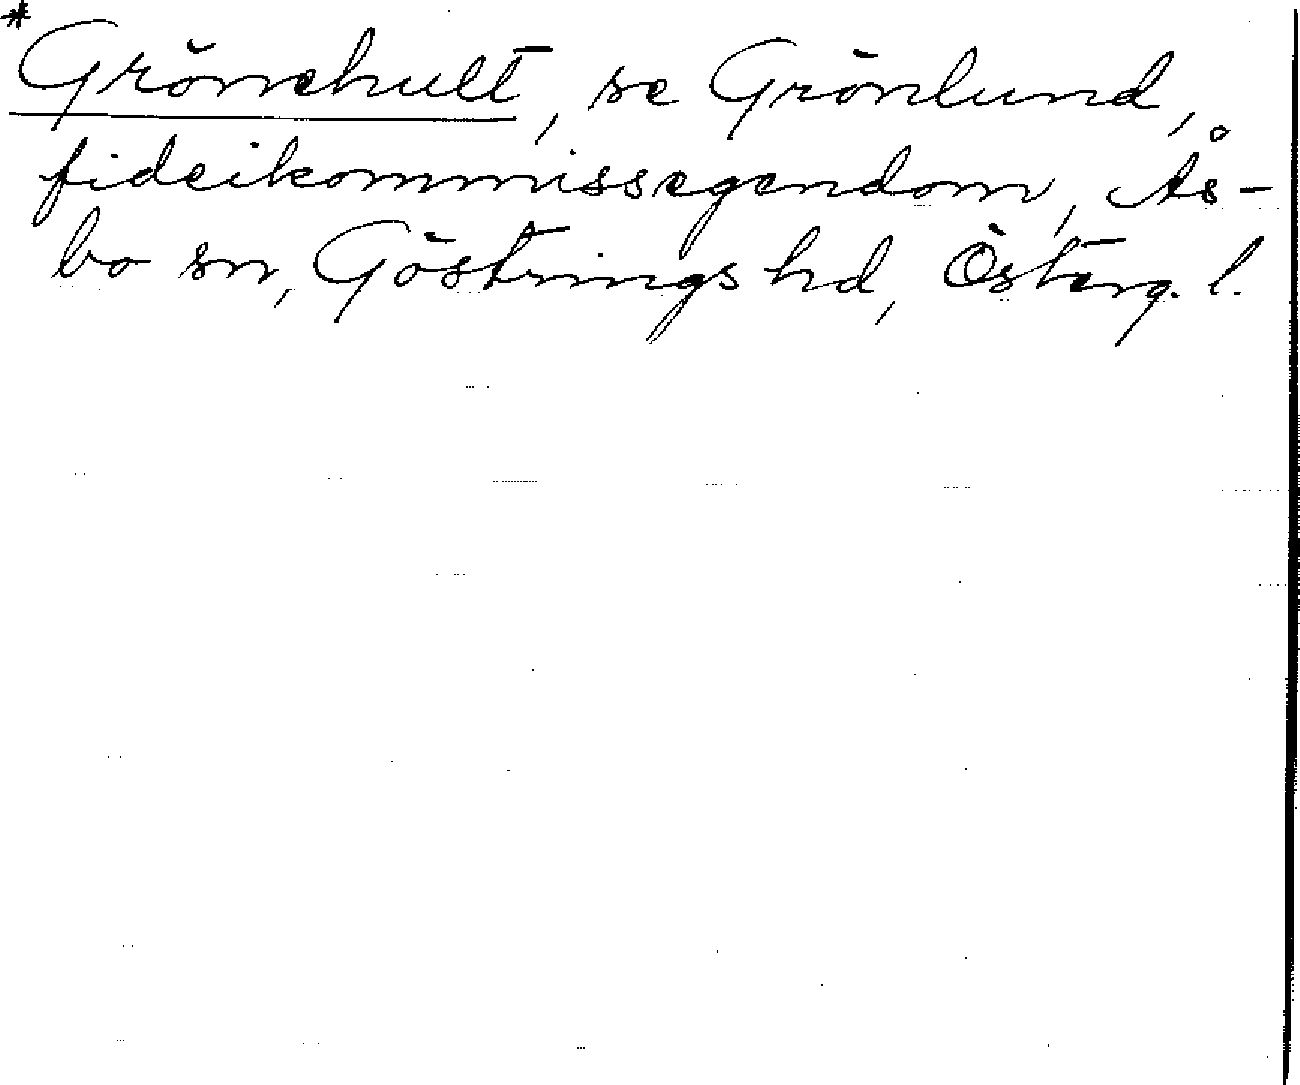 *
Grönehult, se Grönlund,
fideikommissegendom, Ås-
bo sn, Göstrings hd, Österg. l.